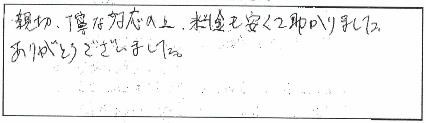 親切、丁寧な対応の上、料金も安くて助かりました。
ありがとうございました。